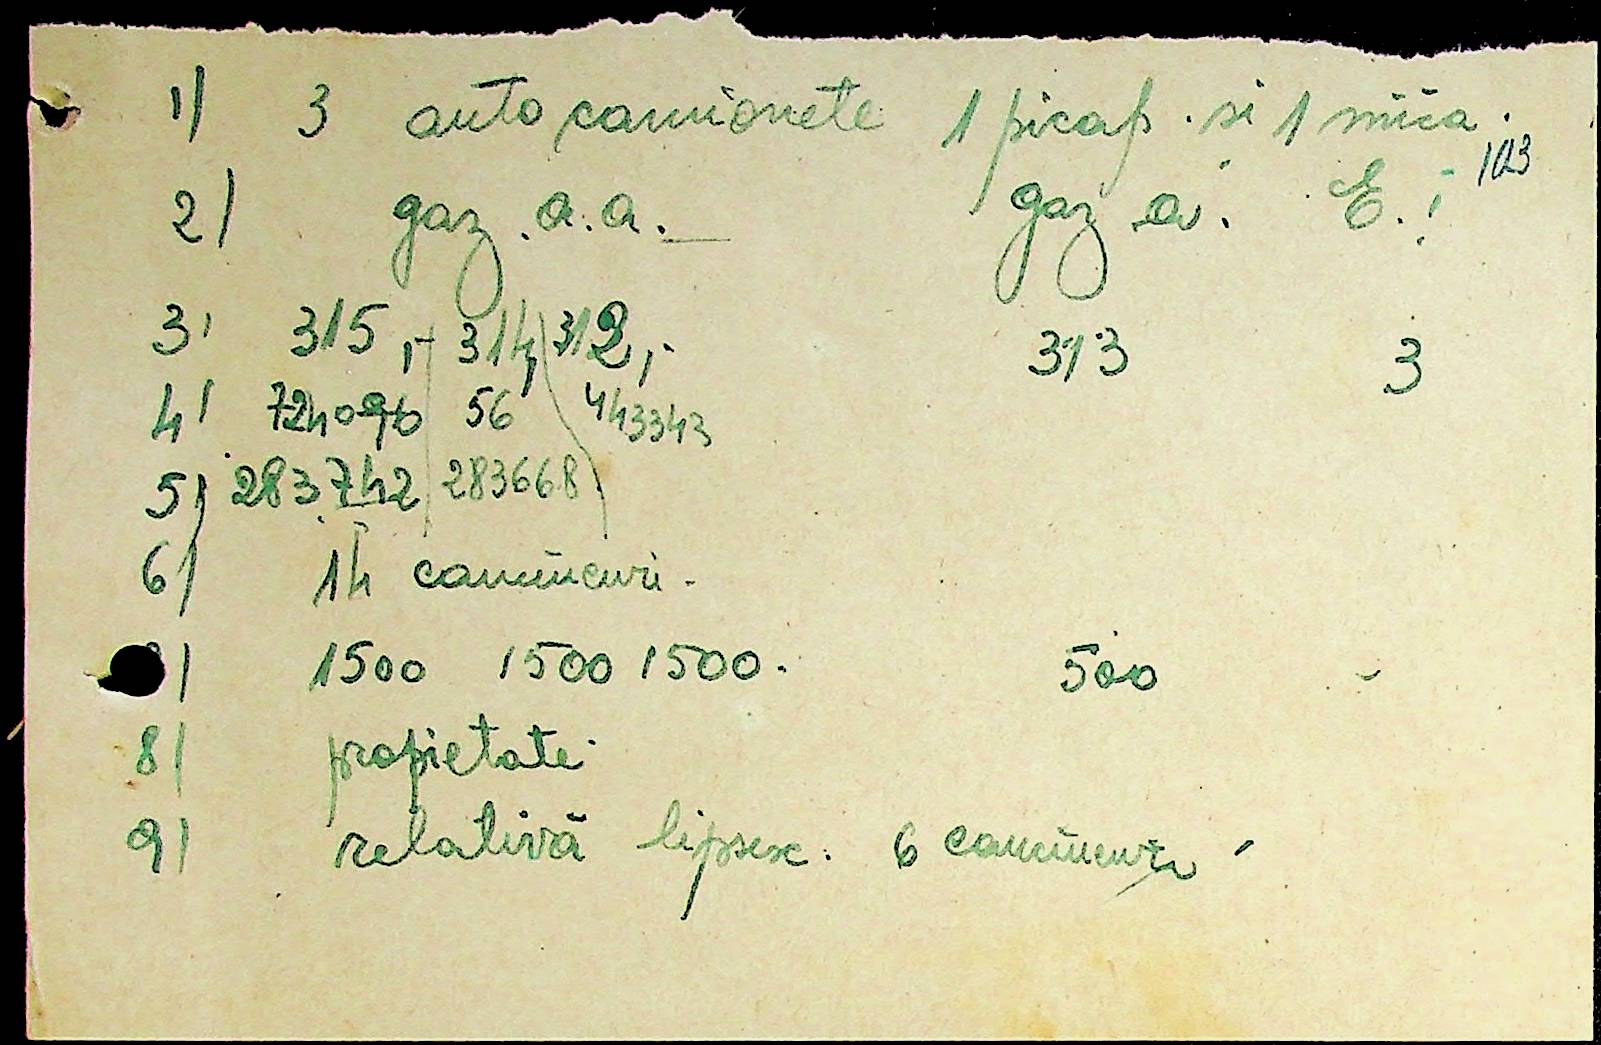 1) 3 auto camionete 1 picap. si 1 mica.
103
2) gaz. a.a. gaz a. E.
3) 315,- 314, 312,- 313 3
4) 724096 56 443343
5) 283742 283668
6) 14 camineuri.
) 1500 1500 1500. 500 -
8) propietate
9) relativă lipsesc. 6